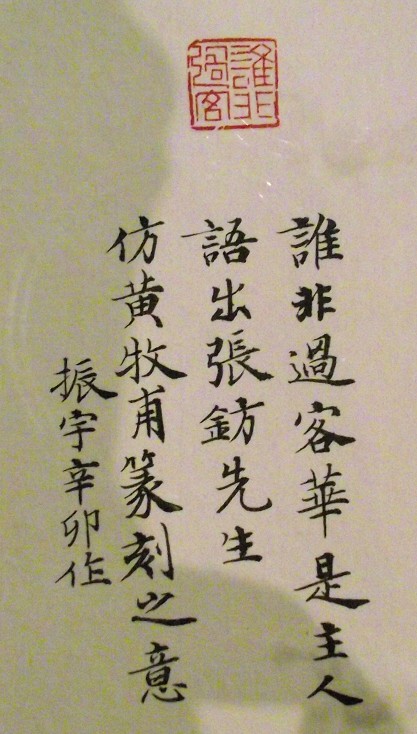 誰非
過客
誰非過客華是主人
語出張鈁先生
仿黄牧甫篆刻之意
振宇辛卯作